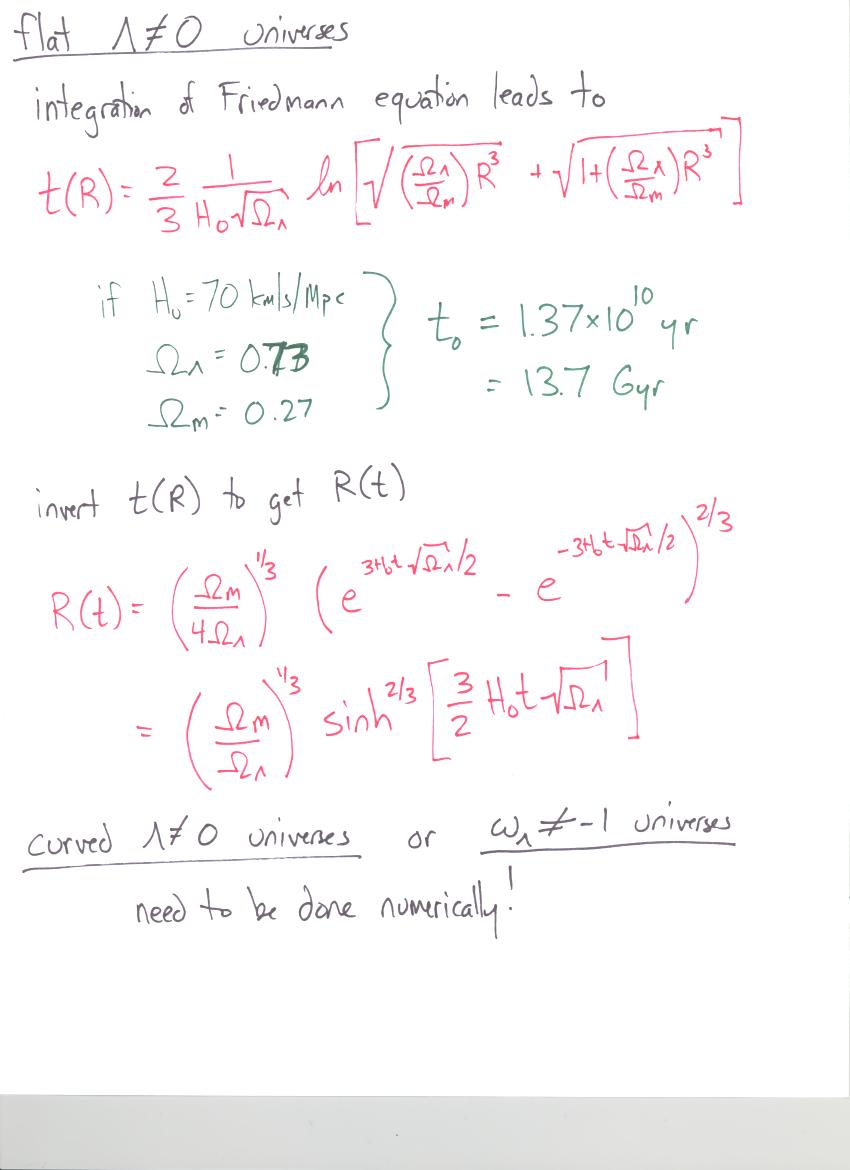 flat Λ≠0 universes
integration of Friedmann equation leads to
t(R) = 2/3 1/(H₀√Ω_Λ) ln [√((Ω_Λ/Ω_m)R³) + √(1+(Ω_Λ/Ω_m)R³)]
if H₀ = 70 km/s/Mpc
Ω_Λ = 0.73
Ω_m = 0.27
} t₀ = 1.37×10¹⁰ yr
= 13.7 Gyr
invert t(R) to get R(t)
R(t) = (Ω_m/4Ω_Λ)^1/3 (e^(3H₀t√Ω_Λ/2) - e^(-3H₀t√Ω_Λ/2))^2/3
= (Ω_m/Ω_Λ)^1/3 sinh^2/3 [3/2 H₀t√Ω_Λ]
curved Λ≠0 universes or ω_Λ≠-1 universes
need to be done numerically!